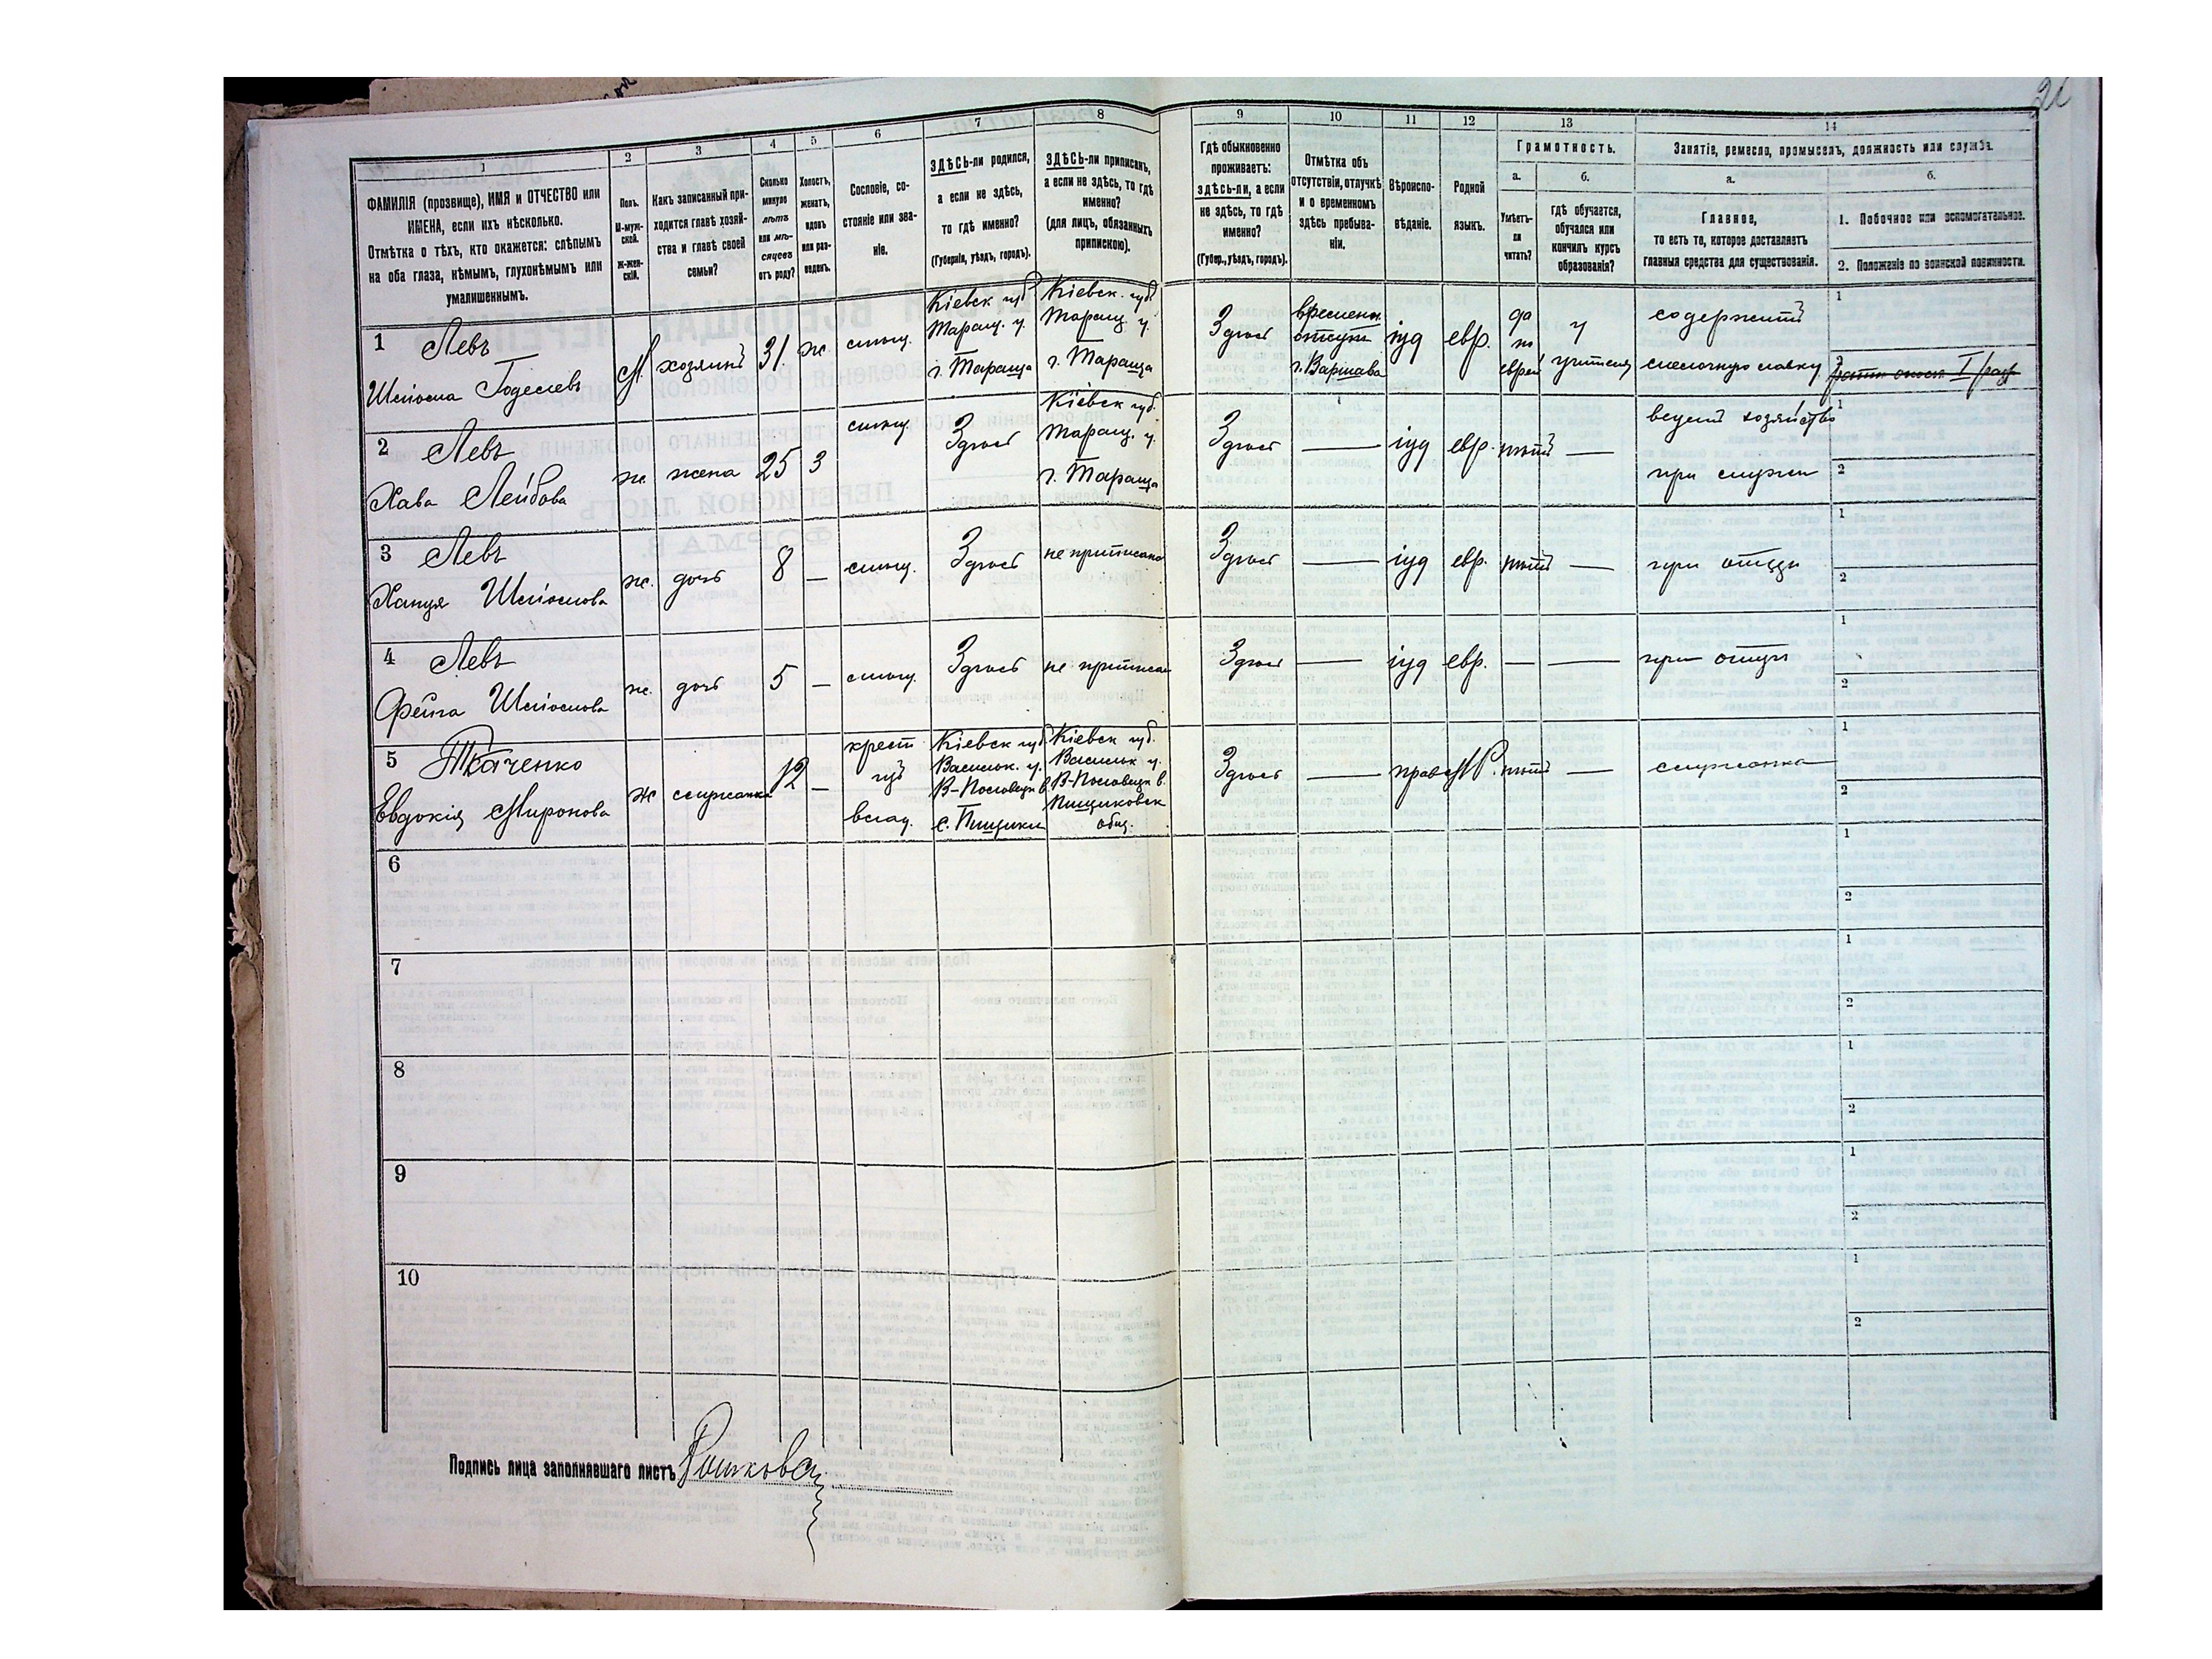 1 2 3 4 5 6 7 8 9 10 11 12 13 14
ФАМИЛІЯ (прозвище), ИМЯ и ОТЧЕСТВО или
ИМЕНА, если ихъ нѣсколько.
Отмѣтка о тѣхъ, кто окажется: слѣпымъ
на оба глаза, нѣмымъ, глухонѣмымъ или
умалишеннымъ.
Полъ.
М-муж-
ской.
Ж-жен-
скій.
Какъ записанный при-
ходится главѣ хозяй-
ства и главѣ своей
семьи?
Сколько
минуло
лѣтъ
или мѣ-
сяцевъ
отъ роду?
Холостъ,
женатъ,
вдовъ
или раз-
веденъ.
Сословіе, со-
стояніе или зва-
ніе.
ЗДѢСЬ-ли родился,
а если не здѣсь,
то гдѣ именно?
(Губернія, уѣздъ, городъ).
ЗДѢСЬ-ли приписанъ,
а если не здѣсь, то гдѣ
именно?
(для лицъ, обязанныхъ
припискою).
Гдѣ обыкновенно
проживаетъ:
здѣсь-ли, а если
не здѣсь, то гдѣ
именно?
(Губер., уѣздъ, городъ).
Отмѣтка объ
отсутствіи, отлучкѣ
и о временномъ
здѣсь пребыва-
ніи.
Вѣроиспо-
вѣданіе.
Родной
языкъ.
Грамотность.
а. б.
Умѣетъ-
ли
читать?
гдѣ обучается,
обучался или
кончилъ курсъ
образованія?
Занятіе, ремесло, промыселъ, должность или служба.
а. б.
Главное,
то есть то, которое доставляетъ
главныя средства для существованія.
1. Побочное или вспомогательное.
2. Положеніе по воинской повинности.
1 Левъ
М. хозяинъ 31. ж. мѣщ.
Кіевск губ
Таращ. у.
г. Тараща
Кіевск. губ
Таращ. у.
г. Тараща
Здѣсь
времен.
г. Варшава
іуд евр.
да
по
еврей
у
учителя
содержитъ
мелочную лавку
1
2
2 Левъ
Хава Лейбова
ж жена 25 З мѣщ. Здѣсь
Кіевск губ.
Таращ. у.
г. Тараща
Здѣсь — іуд евр. нѣтъ —
ведетъ хозяйство
при мужи
1
2
3 Левъ
Ханця Шліомова
ж. дочь 8 — мѣщ. Здѣсь не приписана Здѣсь — іуд евр. нѣтъ — при отцѣ
1
2
4 Левъ
Фейга Шліомова
ж. дочь 5 — мѣщ. Здѣсь не приписан Здѣсь — іуд евр. — — при отцѣ
1
2
5 Ткаченко
Евдокія Миронова
ж служанка 12 —
крест
изъ
влад.
Кіевск губ
Васильк. у.
с. Пищики
Кіевск губ.
Васильк у.
Пищиковск
общ.
Здѣсь — прав МР. нѣтъ — служанка
1
2
6
1
2
7
1
2
8
1
2
9
1
2
10
1
2
Подпись лица заполнявшаго листъ